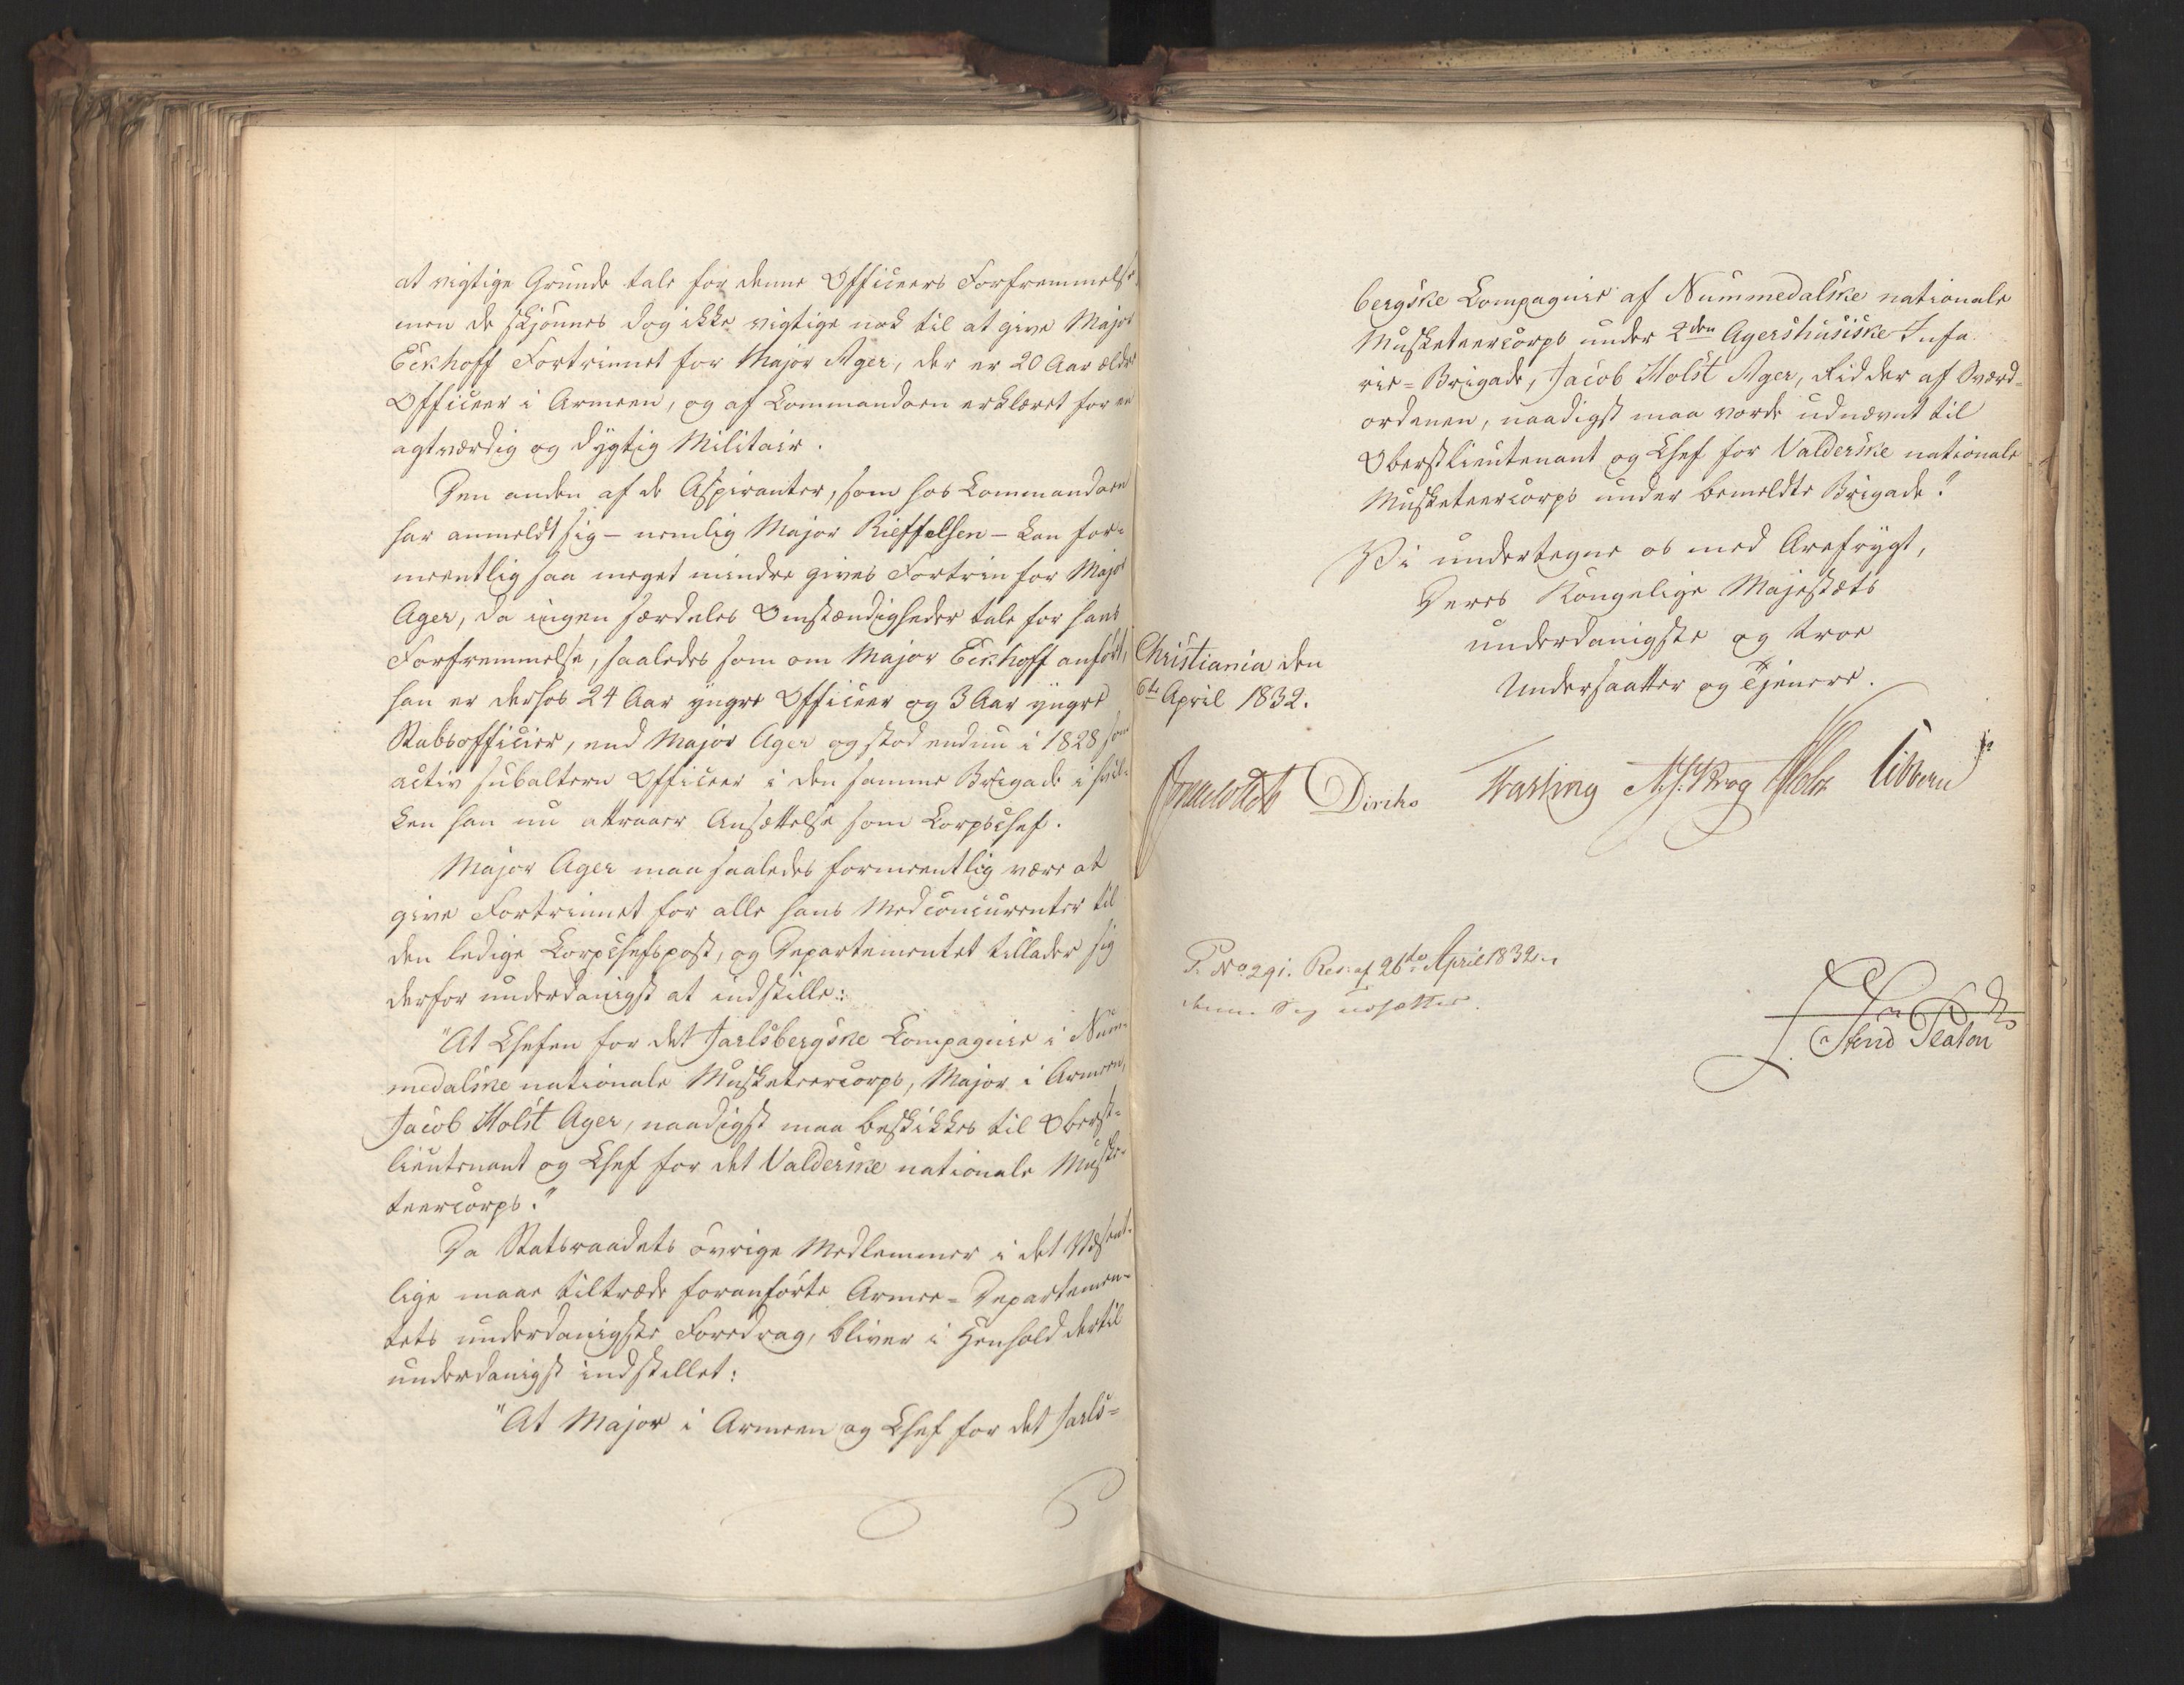 at vigtige Grunde tale for denne Officeers Forfremmelse,
men de skjønnes dog ikke vigtige nok til at give Major
Eckhoff Fortrinnet for Major Ager, der er 20 Aar ældre
Officeer i Armeen, og af Commandoen erklæret for en
agtværdig og dygtig Militair.
Den anden af de Aspiranter, som hos Commandoen
har anmeldt sig – nemlig Major Rieffelsen – kan for-
meentlig saa meget mindre gives Fortrin for Major
Ager, da ingen særdeles Omstændigheder tale for hans
Forfremmelse, saaledes som om Major Eckhoff anført,
han er derhos 24 Aar yngre Officeer og 3 Aar yngre
Stabsofficier, end Major Ager og stod endnu i 1828 som
activ subaltern Officeer i den samme Brigade i hvil-
ken han nu attraaer Ansættelse som Corpschef.
Major Ager maa saaledes formeentlig være at
give Fortrinnet for alle hans Medconcurenter til
den ledige Corpschefspost, og Departementet tillader sig
derfor underdanigst at indstille:
"At Chefen for det Jarlsbergske Compagnie i Num-
medalske nationale Musketeercorps, Major i Armeen,
Jacob Holst Ager, naadigst maa beskikkes til Oberst-
lieutenant og Chef for det Valderske nationale Muske-
teercorps."
Da Statsraadets øvrige Medlemmer i det Væsent-
lige maae tiltræde foranførte Armee-Departemen-
tets underdanigste Foredrag, bliver i Henhold dertil
underdanigst indstillet:
"At Major i Armeen og Chef for det Jarls-
bergske Compagnie af Nummedalske nationale
Musketeercorps under 2den Agershusiske Infa
rie-Brigade, Jacob Holst Ager, Ridder af Sværd-
ordenen, naadigst maa vorde udnævnt til
Oberstlieutenant og Chef for Valderske nationale
Musketeercorps under bemeldte Brigade."
Vi undertegne os med Ærefrygt,
Deres Kongelige Majestæts
underdanigste og troe
Undersaatter og Tjenere.
Christiania den
6te April 1832.
Diriks Fasting Krog Holst Vibe
P. No 291. Res. af 26de April 1832